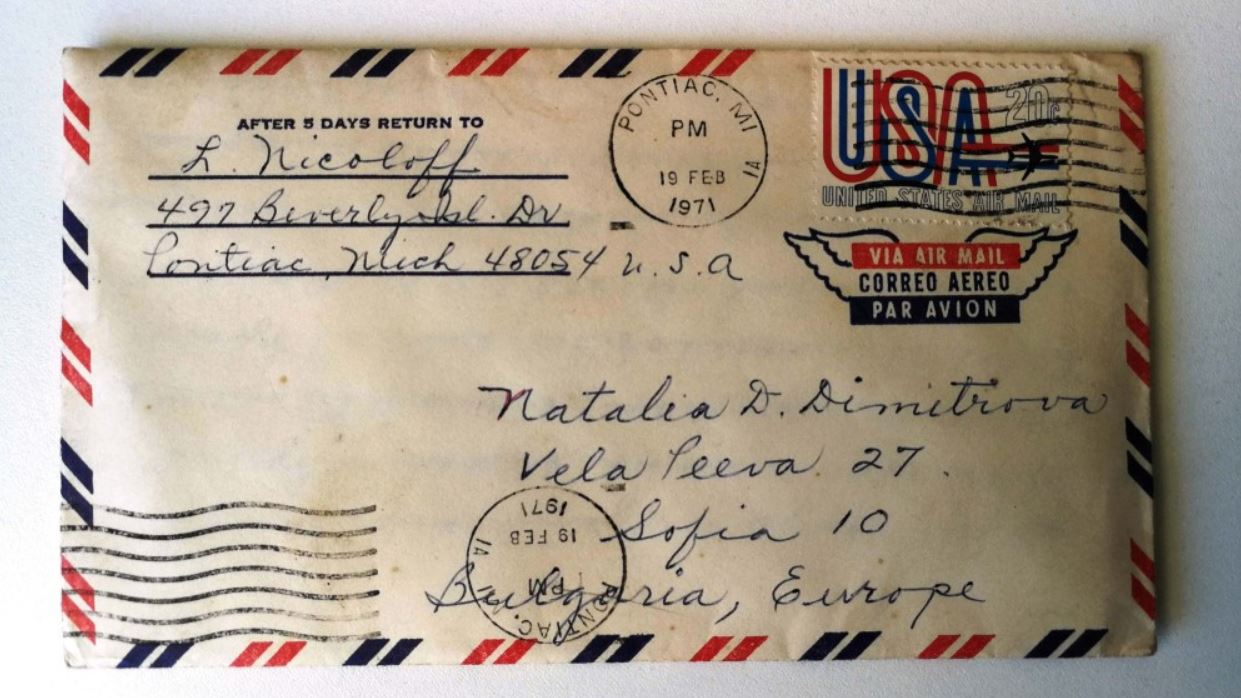 AFTER 5 DAYS RETURN TO
L. Nicoloff
497 Beverly Isl. Dr
Pontiac, Mich 48054 U.S.A
PONTIAC, MI
PM
19 FEB
1971
1A
USA 20c
UNITED STATES AIR MAIL
VIA AIR MAIL
CORREO AEREO
PAR AVION
Natalia D. Dimitrova
Vela Peeva 27.
Sofia 10
Bulgaria, Europe
PONTIAC, MI
PM
19 FEB
1971
1A